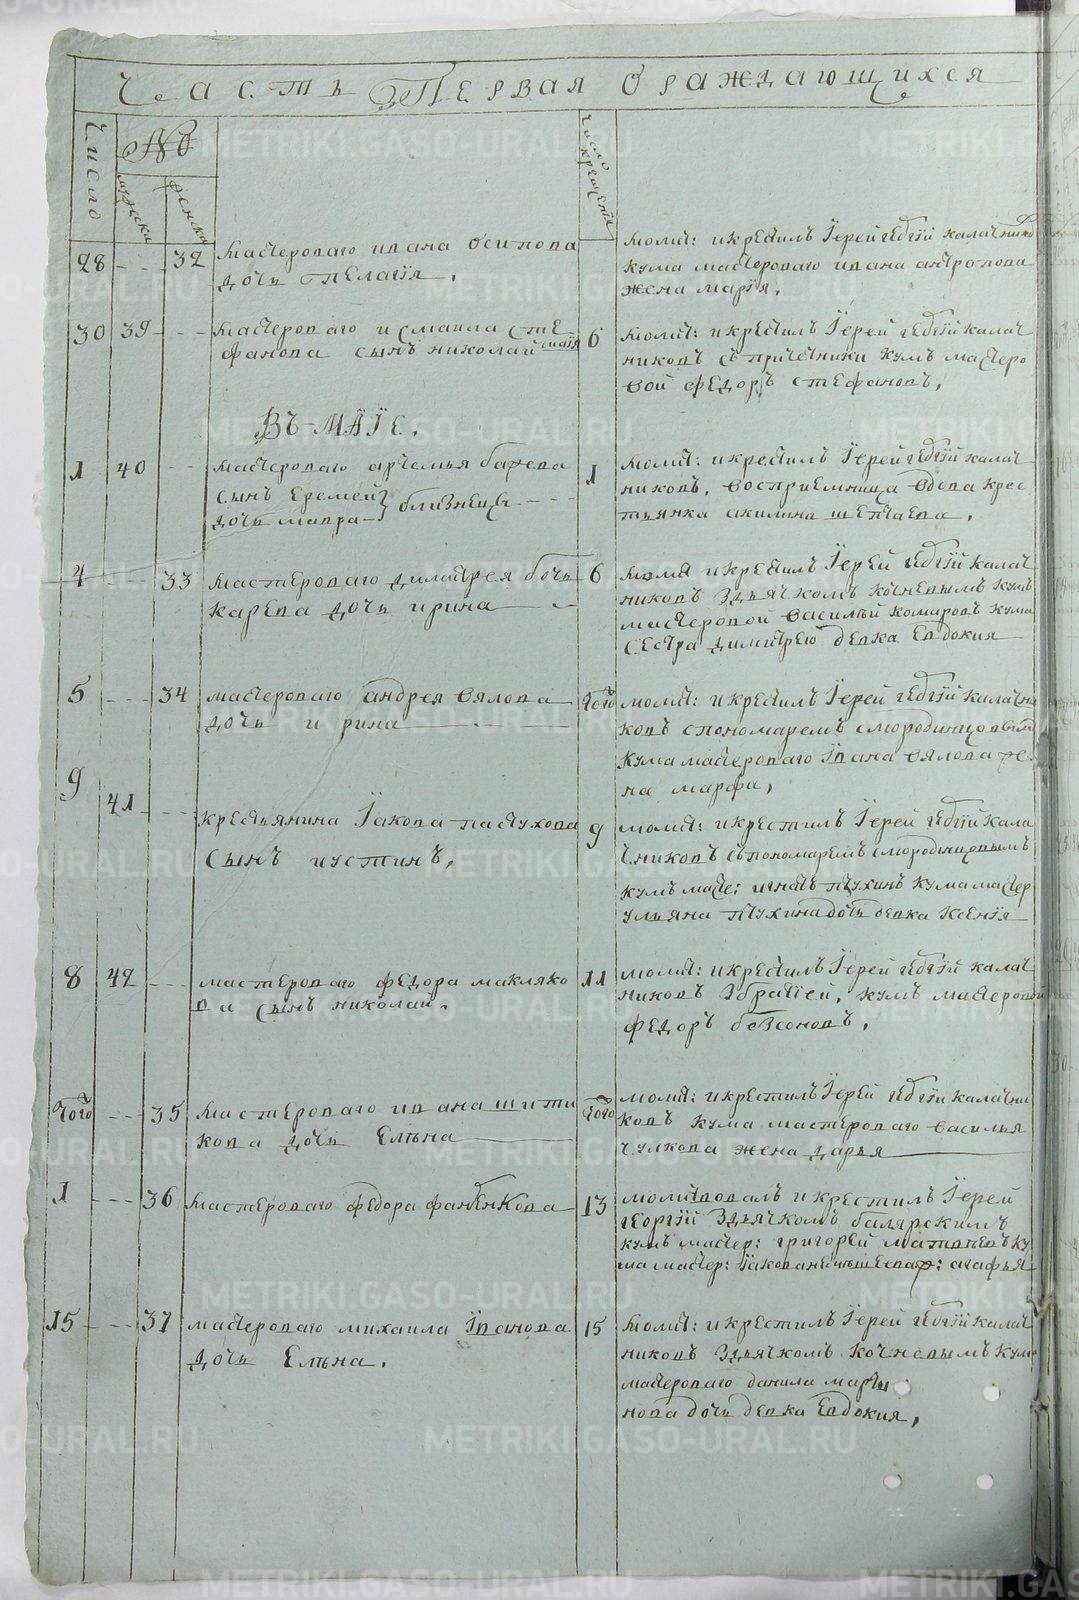 Часть Первая о раждающихся
Число
№
мужеска
женска
Число крещенїя
28 32 мастероваго ивана осипова
дочь Пелагїя.
молит: и крестил Їерей геѡргїй калачнико
кума мастероваго ивана антропова
жена марїя.
30 39 мастероваго исмаила сте
фанова сынъ николай
6 молит: и крестилъ Їерей геѡргїй калач
никовъ съ причетники кумъ мастеро
вой федоръ стефановъ,
Въ Маїе.
1 40 мастероваго артемья
сынъ еремей
дочь мавра близнецы
1 молит: и крестилъ Їерей геѡргїй калач
никовъ, восприемница вдова крес
тьянка акилина шептаева,
4 33 мастероваго димитрея боч
карева дочь ирина
6 молит и крестилъ Їерей геѡргїй калач
никовъ здьячкомъ кочневымъ кумъ
мастеровой василъй комаровъ кума
сестра димитрею девка Евдокия
5 34 мастероваго андрея вялова
дочь ирина
Того молит: и крестилъ Їерей геѡргїй калачни
ковъ спономаремъ смородинцовым
кума мастероваго Їванa вялова же
на марфа,
9 41 крестьянина Їакова пастухова
сынъ иустинъ.
9 молит: и крестилъ Їерей геѡргїй кала
чниковъ съ пономаремъ смородинцовымъ
кумъ масте: игнатъ птухинъ кума мастер
ульяна птухина дочь девка Ксенїя
8 42 мастероваго федора макляко
ва сынъ николай.
11 молит: и крестилъ Їерей геѡргїй калач
никовъ збратїей, кумъ мастеровой
федоръ безсоновъ,
Того 35 мастероваго ивана шити
кова дочь Елена
Того молит: и крестилъ Їерей геѡргїй калачни
ковъ кума мастероваго василья
чулкова жена дарья
1 36 мастероваго федора
13 молитвовалъ и крестилъ Їерей
георгїй здьячкомъ балярскимъ
кумъ мастер: григорей матвеевъ ку
ма мастер: агафья
15 37 мастероваго михаила Їванова
дочь Елена.
15 молит: и крестилъ Їерей геѡргїй калач
никовъ здьячкомъ кочневымъ кума
мастероваго данила марты
нова дочь девка Евдокия,
METRIKI.GASO-URAL.RU